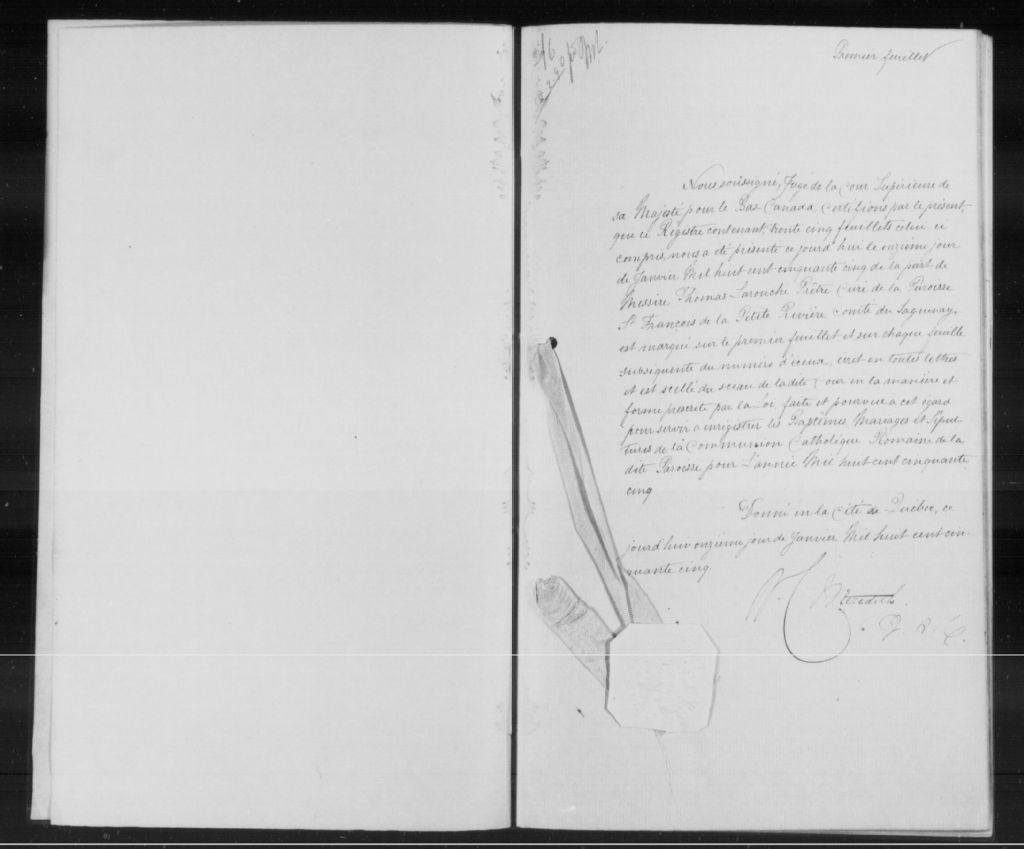 Premier feuillet
Nous soussigné, Juge de la Cour Supérieure de
sa Majesté pour le Bas-Canada, certifions par le présent,
que ce Régistre contenant trente cinq feuillets celui ci
compris, nous a été présenté ce jourd'hui le onzième jour
de Janvier Mil huit cent cinquante cinq de la part de
Messire Thomas Larouche Prêtre Curé de la Paroisse
St François de la Petite Rivière Comté du Saguenay,
est marqué sur le premier feuillet et sur chaque feuille
subséquente du numéro d'iceux, écrit en toutes lettres
et est scellé du sceau de la dite Cour en la manière et
forme prescrite par la Loi faite et pourvue a cet égard
pour servir a enrégistrer les Baptêmes Mariages et Sépul-
tures de la Communion Catholique Romaine de la
dite Paroisse pour L'année Mil huit cent cinquante
cinq
Donné en la Cité de Québec, ce
jourd'hui onzième jour de Janvier Mil huit cent cin-
quante cinq.
Meredith